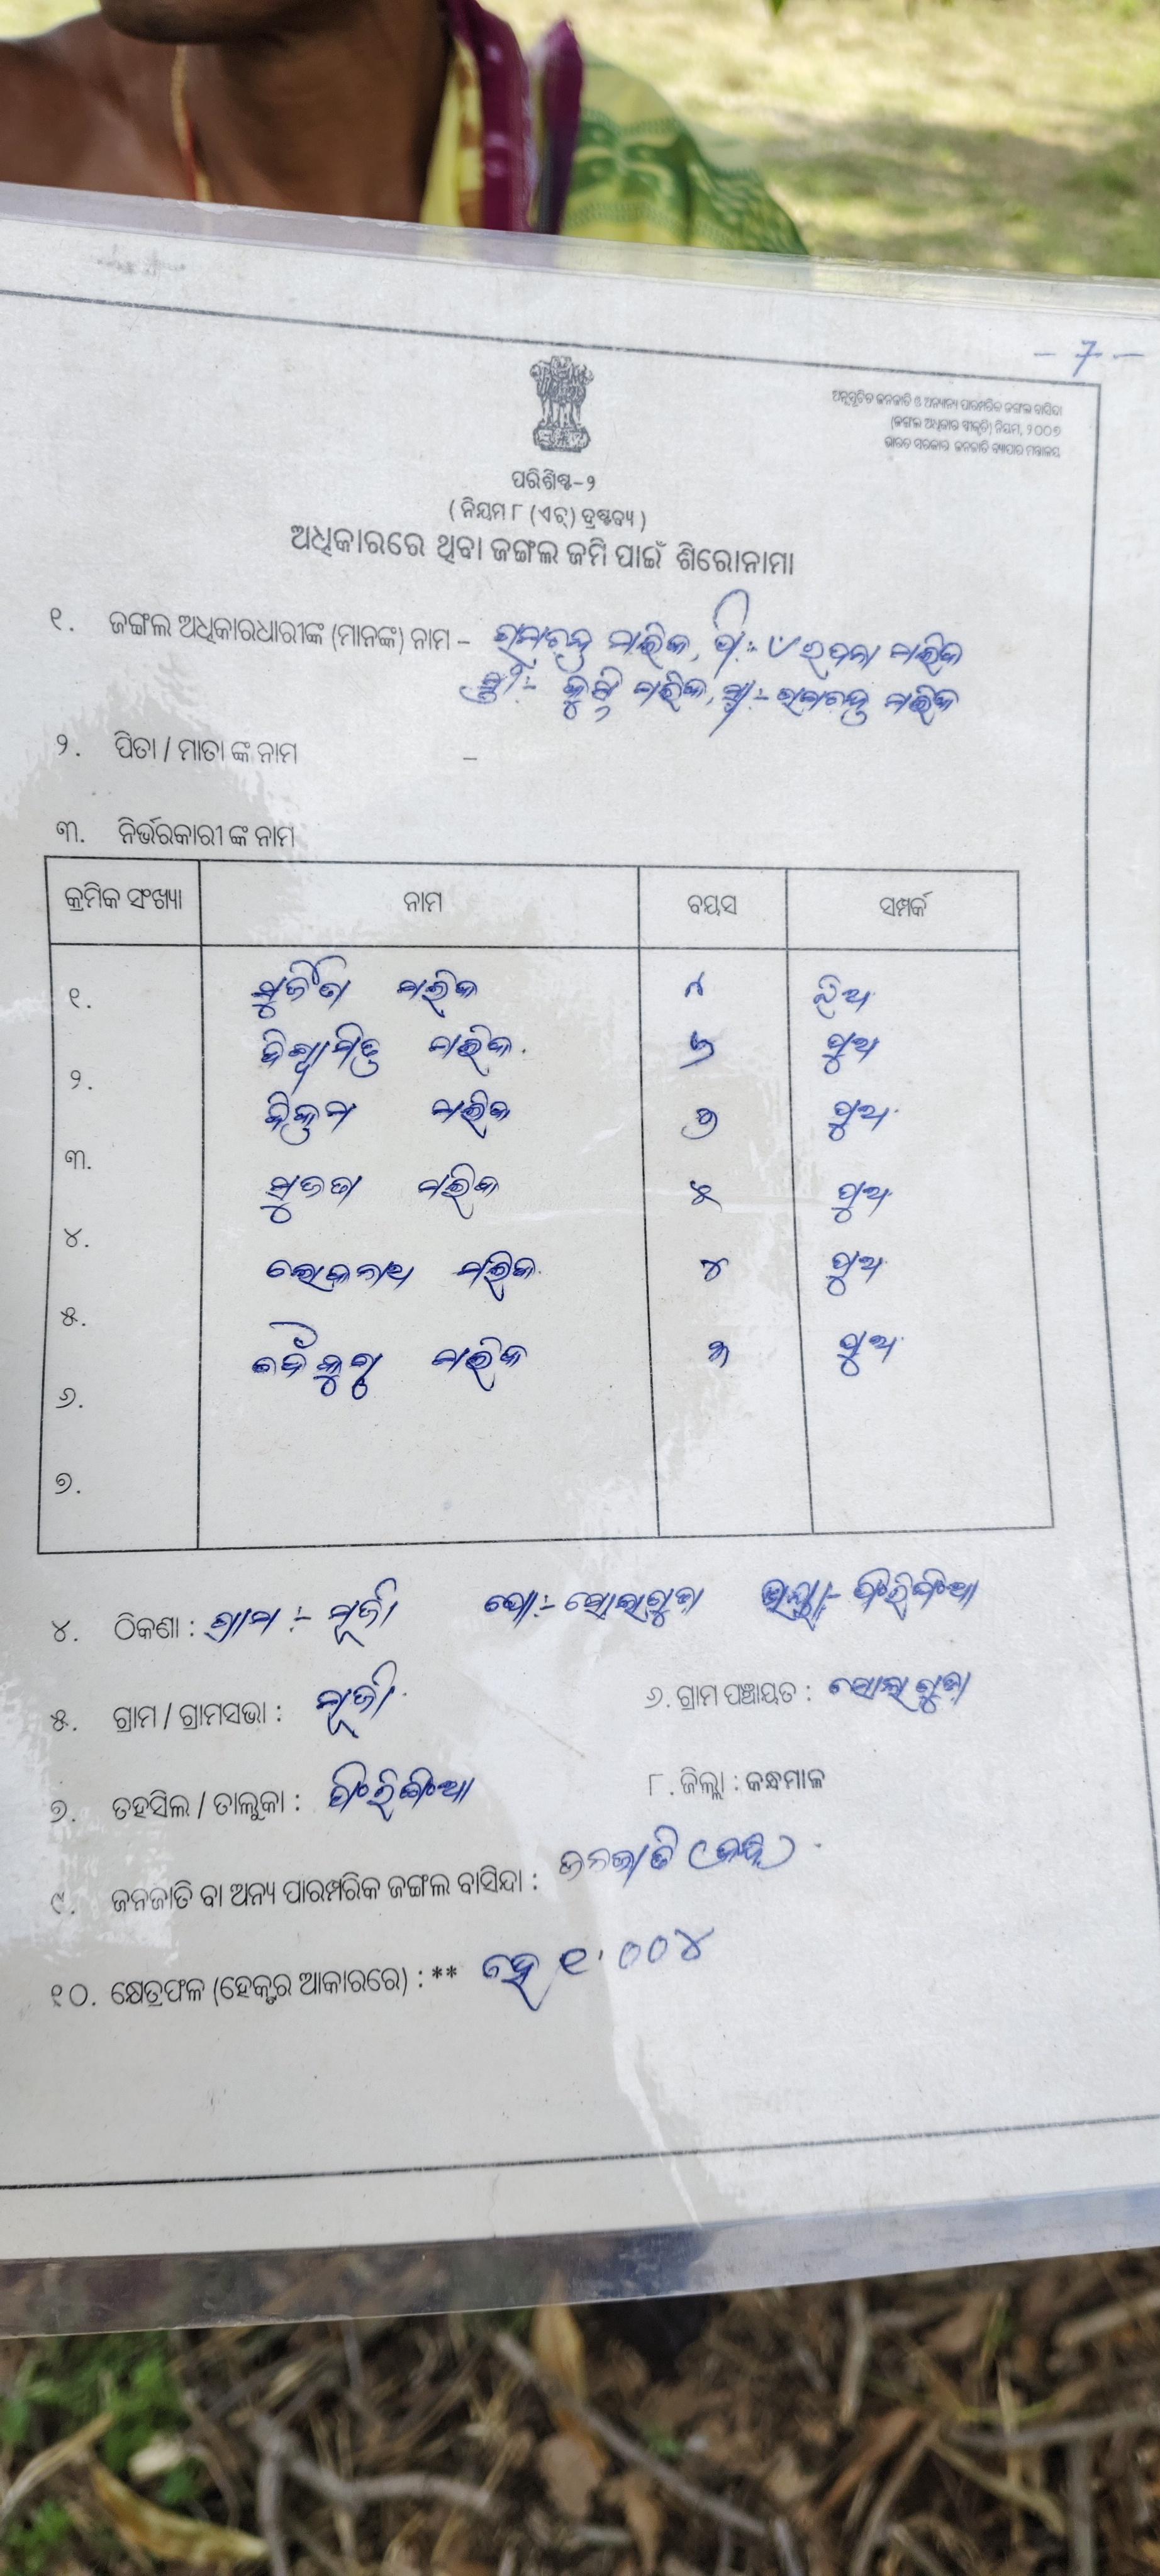 - 7 -
ଅନୁସୂଚିତ ଜନଜାତି ଓ ଅନ୍ୟାନ୍ୟ ପାରମ୍ପରିକ ଜଙ୍ଗଲ ବାସିନ୍ଦା
(ଜଙ୍ଗଲ ଅଧିକାର ସ୍ୱୀକୃତି) ନିୟମ, ୨୦୦୭
ଭାରତ ସରକାର ଜନଜାତି ବ୍ୟାପାର ମନ୍ତ୍ରାଳୟ
ପରିଶିଷ୍ଟ-୨
( ନିୟମ ୮ (ଏଚ୍) ଦ୍ରଷ୍ଟବ୍ୟ )
ଅଧିକାରରେ ଥିବା ଜଙ୍ଗଲ ଜମି ପାଇଁ ଶିରୋନାମା
୧. ଜଙ୍ଗଲ ଅଧିକାରଧାରୀଙ୍କ (ମାନଙ୍କ) ନାମ – ରାମଚନ୍ଦ୍ର ମଲିକ, ପି:- ମଲିକ
ସ୍ତ୍ରୀ:- ମଲିକ, ସ୍ୱା:- ରାମଚନ୍ଦ୍ର ମଲିକ
୨. ପିତା / ମାତା ଙ୍କ ନାମ –
୩. ନିର୍ଭରକାରୀ ଙ୍କ ନାମ
କ୍ରମିକ ସଂଖ୍ୟା ନାମ ବୟସ ସମ୍ପର୍କ
୧. ମଲିକ ଝିଅ
୨. ବିଶ୍ୱାମିତ୍ର ମଲିକ ୭ ପୁଅ
୩. ବିକ୍ରମ ମଲିକ ୬ ପୁଅ
୪. ମଲିକ ୫ ପୁଅ
୫. ଲୋକନାଥ ମଲିକ ୪ ପୁଅ
୬. ବୈକୁଣ୍ଠ ମଲିକ ୩ ପୁଅ
୭.
୪. ଠିକଣା : ଗ୍ରାମ :- ପୋ:- ଭାୟା:- ଫିରିଙ୍ଗିଆ
୫. ଗ୍ରାମ / ଗ୍ରାମସଭା :
୬. ଗ୍ରାମ ପଞ୍ଚାୟତ :
୭. ତହସିଲ / ତାଲୁକା : ଫିରିଙ୍ଗିଆ
୮. ଜିଲ୍ଲା : କନ୍ଧମାଳ
୯. ଜନଜାତି ବା ଅନ୍ୟ ପାରମ୍ପରିକ ଜଙ୍ଗଲ ବାସିନ୍ଦା : ଜନଜାତି (କନ୍ଧ)
୧୦. କ୍ଷେତ୍ରଫଳ (ହେକ୍ଟର ଆକାରରେ) : ** ହେ ୧.୦୦୪